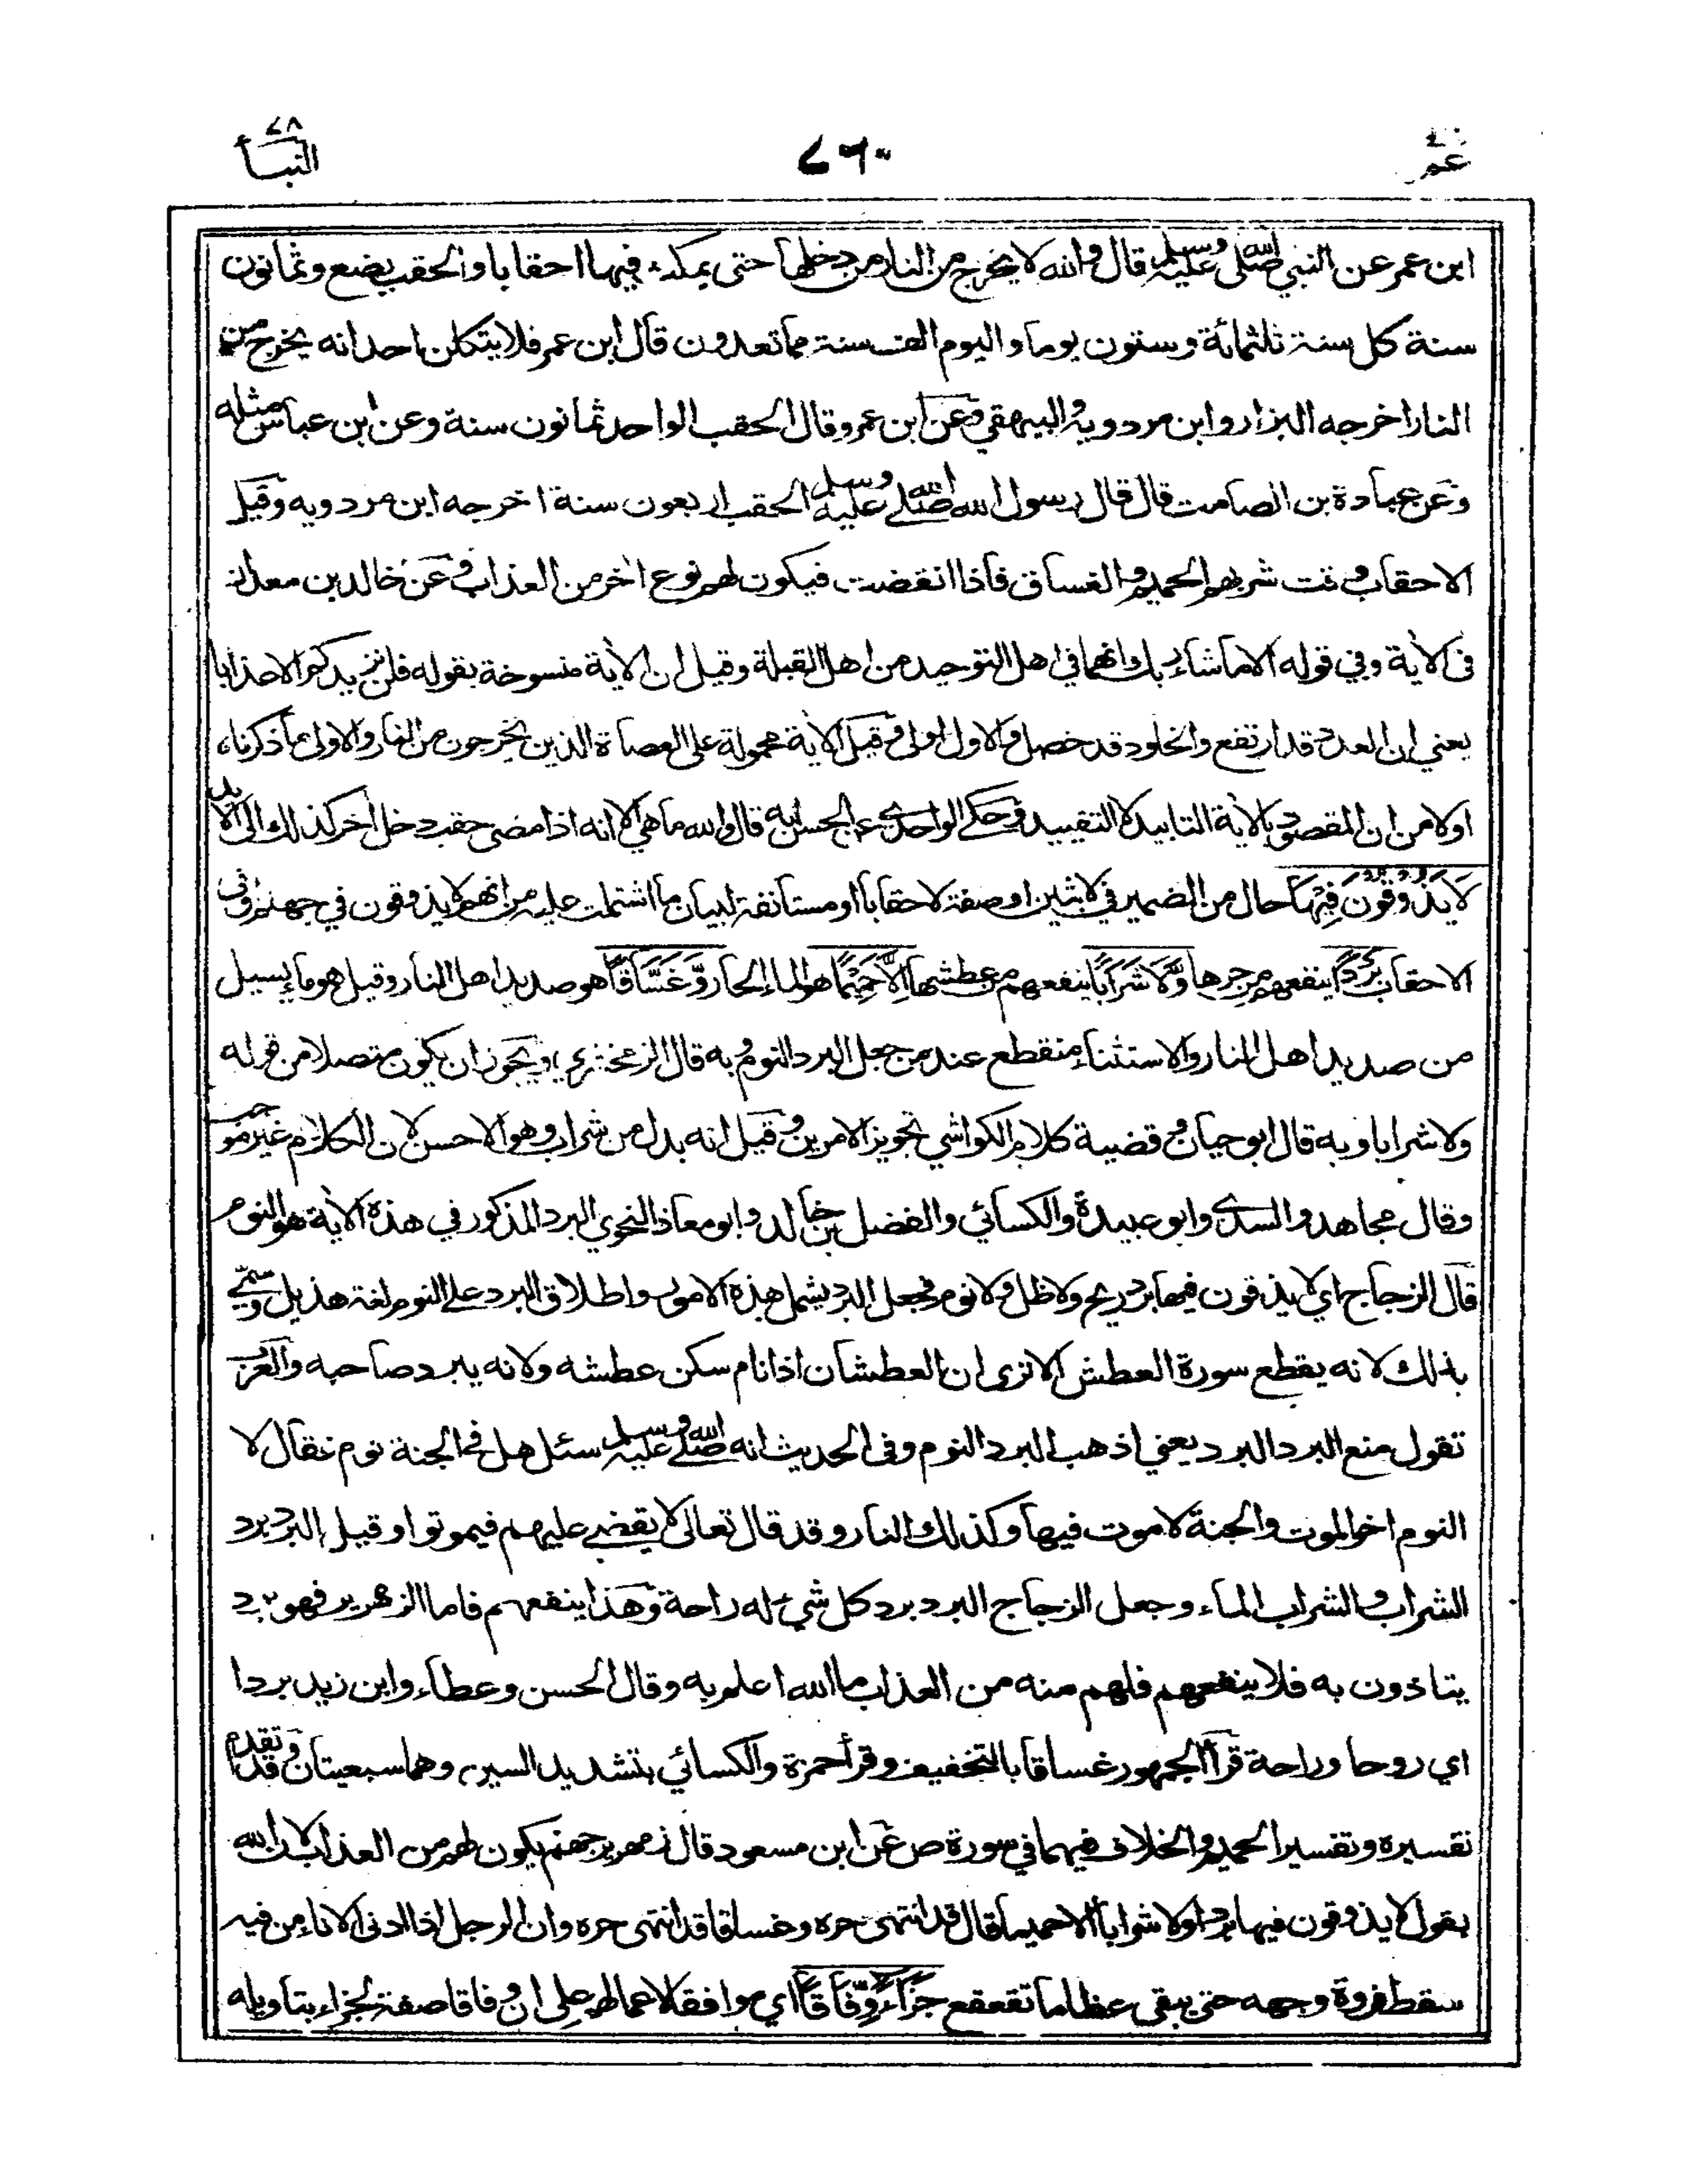 عم ٣٠
٧٦٠
النبأ ٧٨
ابن عمر عن النبي صلى الله عليه وسلم قال والله لا يخرج من النار من دخلها حتى يمكث فيها احقابا والحقب بضع وثمانون
سنة كل سنة ثلثمائة وستون يوما واليوم الف سنة مما تعدون قال ابن عمر فلا يتكلن احد انه يخرج من
النار اخرجه البزار وابن مردويه والبيهقي وعن ابن عمرو قال الحقب الواحد ثمانون سنة وعن ابن عباس مثله
وعن عبادة بن الصامت قال قال رسول الله صلى الله عليه وسلم الحقب اربعون سنة اخرجه ابن مردويه وقيل
الاحقاب وقت شربهم الحميم والغساق فاذا انقضت فيكون لهم نوع اخر من العذاب وعن خالد بن معدان
فى الاٰية وفي قوله الا ما شاء ربك انهما في اهل التوحيد من اهل القبلة وقيل ان الاٰية منسوخة بقوله فلن نزيدكم الا عذابا
يعني ان العدد قد ارتفع والخلود قد حصل والاول اولى وقيل الاٰية محمولة على العصاة الذين يخرجون من النار والاولى ما ذكرناه
اولا من ان المقصود بالاٰية التابيد لا التقييد وحكى الواحدي عن الحسن انه قال والله ما هي الا انه اذا مضى حقب دخل اٰخر كذلك الى الابد
لَا يَذُوقُونَ فِيْهَا حال من الضمير في لابثين او صفة لاحقابا او مستأنفة لبيان ما اشتملت عليه من انهم لا يذوقون في جهنم او في
الاحقاب بَرْدًا ينفعهم من حرها وَّلَا شَرَابًا ينفعهم من عطشها اِلَّا حَمِيْمًا هو الماء الحار وَّغَسَّاقًا هو صديد اهل النار وقيل هو ما يسيل
من صديد اهل النار والاستثناء منقطع عند من جعل البرد النوم وبه قال الزمخشري ويجوز ان يكون متصلا من قوله
ولا شرابا وبه قال ابو حيان وقضية كلام الكواشي تجويز الامرين وقيل انه بدل من شراب وهو الاحسن لان الكلام غير موجب
وقال مجاهد والسدي وابو عبيدة والكسائي والفضل بن خالد وابو معاذ النحوي البرد المذكور في هذه الاٰية هو النوم
قال الزجاج اي لا يذوقون فيها برد ريح ولا ظل ولا نوم فجعل البرد يشمل هذه الامور واطلاق البرد على النوم لغة هذيل وسمي
بذلك لانه يقطع سورة العطش الا ترى ان العطشان اذا نام سكن عطشه ولانه يبرد صاحبه والعرب
تقول منع البرد البرد يعني اذهب البرد النوم وفى الحديث انه صلى الله عليه وسلم سئل هل فى الجنة نوم فقال لا
النوم اخو الموت والجنة لا موت فيها وكذلك النار وقد قال تعالى لا يقضى عليهم فيموتوا وقيل البرد برد
الشراب والشراب الماء وجعل الزجاج البرد برد كل شيء له راحة وهذا ينفعهم فاما الزمهرير فهو برد
يتاذون به فلا ينفعهم فلهم منه من العذاب ما الله اعلم به وقال الحسن وعطاء وابن زيد بردا
اي روحا وراحة قرأ الجمهور غساقا بالتخفيف وقرأ حمزة والكسائي بتشديد السين وهما سبعيتان وقد تقدم
تفسيره وتفسير الحميم والخلاف فيهما في سورة ص عن ابن مسعود قال زمهرير جهنم يكون لهم من العذاب لان الله
يقول لا يذوقون فيها بردا ولا شرابا الا حميما قال قد انتهى حره وغساقا قد انتهى حره وان الرجل اذا ادنى الاناء من فيه
سقط فروة وجهه حتى يبقى عظاما تقعقع جَزَاۤءً وِّفَاقًا اي موافقا لاعمالهم على ان وفاقا صفة لجزاء بتاويله